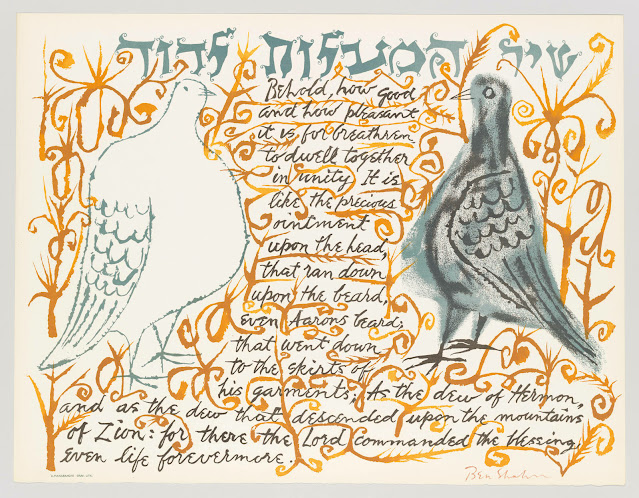 שיר המעלות לדוד
Behold, how good
and how pleasant
it is for breathren
to dwell together
in unity It is
like the precious
ointment
upon the head,
that ran down
upon the beard,
even Aarons beard;
that went down
to the skirts of
his garments; As the dew of Hermon,
and as the dew that descended upon the mountains
of Zion: for there the Lord commanded the blessing
Even life forevermore.
Ben Shahn